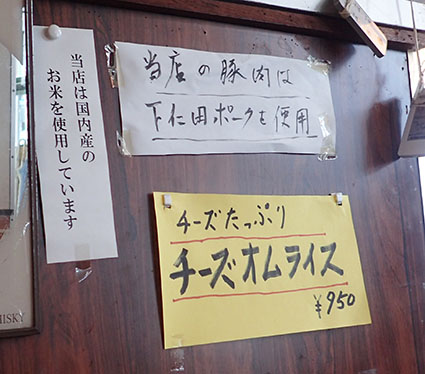 当店は国内産の
お米を使用しています
当店の豚肉は
下仁田ポークを使用
チーズたっぷり
チーズオムライス
¥950
HISKY